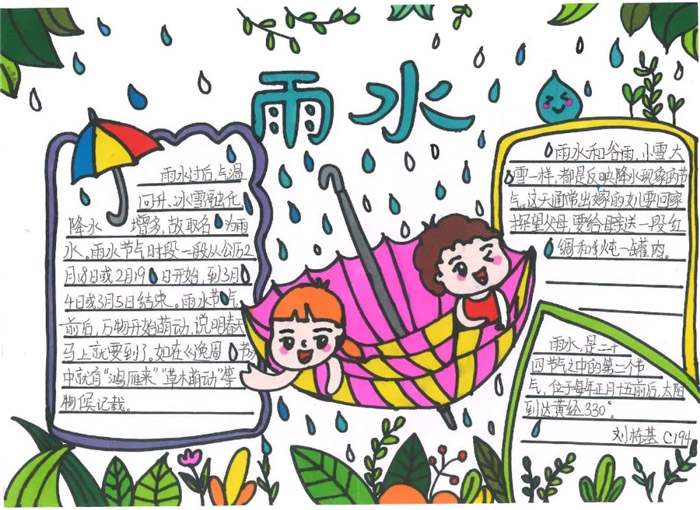 雨水
雨水过后,气温
回升、冰雪融化
降水 增多,故取名 为雨
水。雨水节气时段一般从公历2
月18日或2月19 日开始,到3月
4日或3月5日结束。雨水节气
前后,万物开始萌动,说明春天
马上就要到了。如在《逸周 》书
中就有“鸿雁来”“草木萌动”等
物候记载。
雨水和谷雨、小雪、大
雪一样,都是反映降水现象的节
气,这天通常出嫁的女儿要回家
探望父母,要给母亲送一段红
绸和炖一罐肉。
雨水,是二十
四节气之中的第二个节
气,位于每年正月十五前后,太阳
到达黄经330°
C194